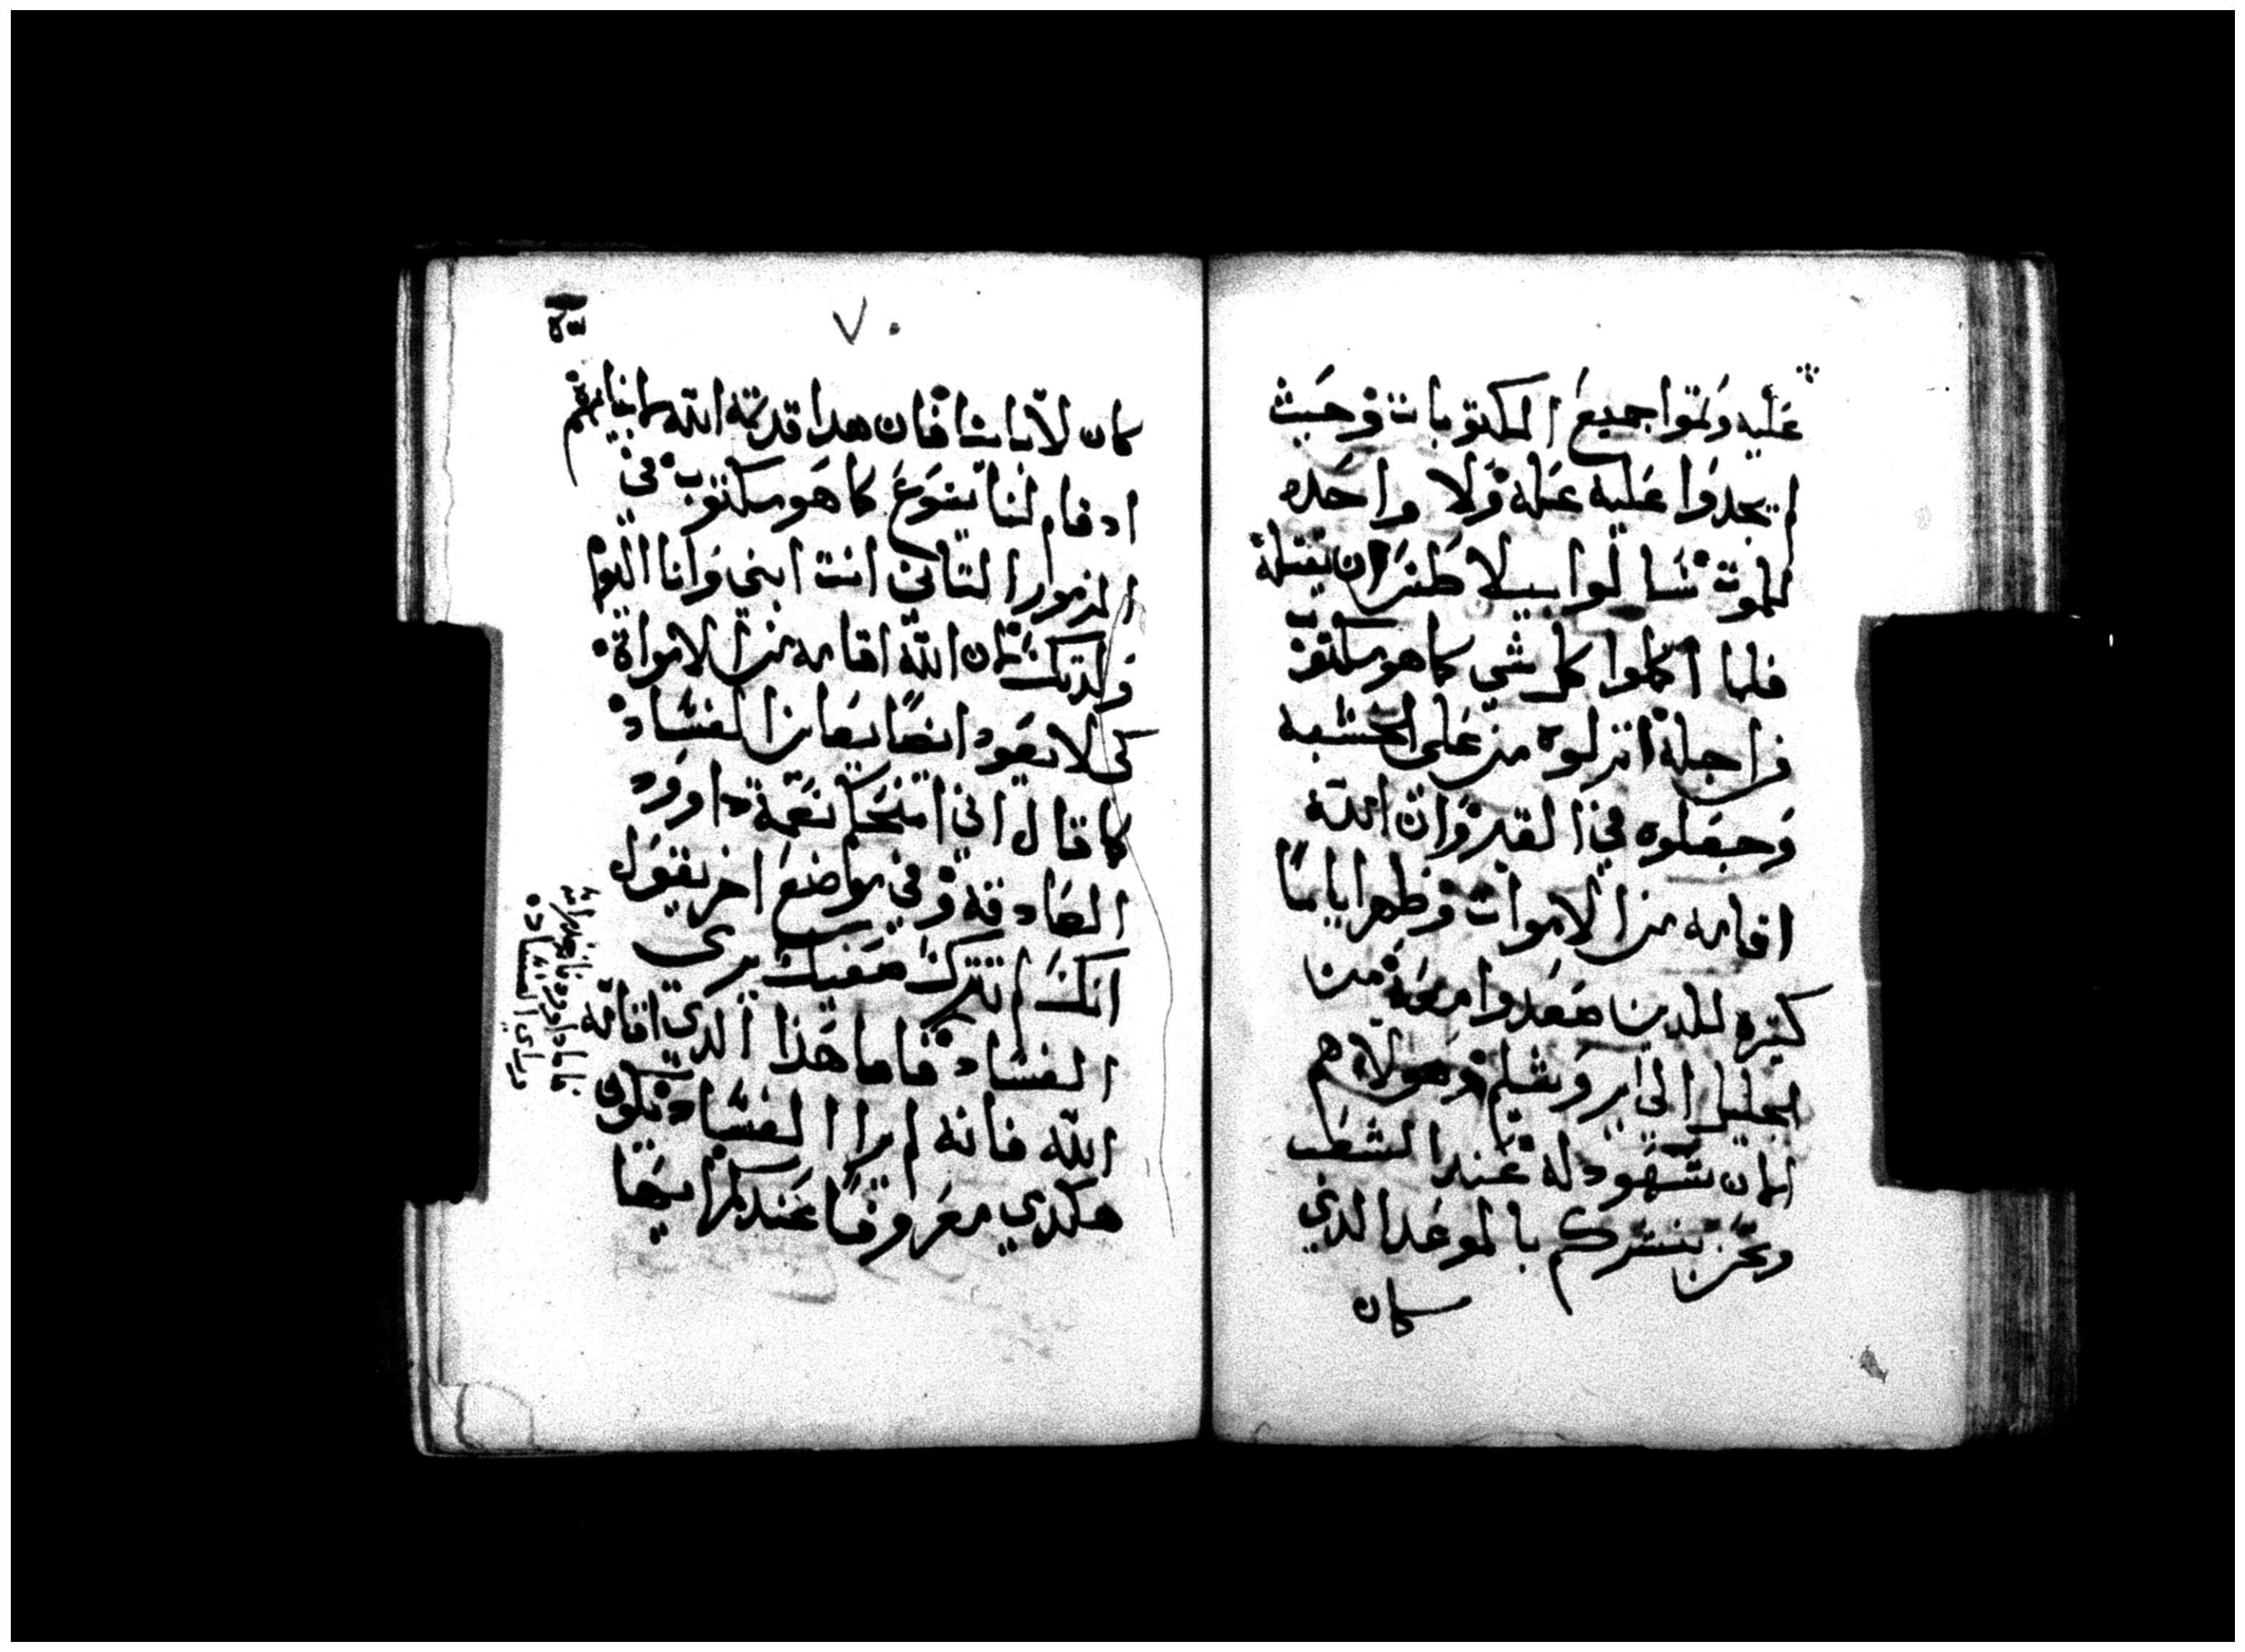 عليه وتموا جميع المكتوبات وحيث
لم يجدوا عليه عله ولا واحده
للموت سالوا بيلاطس ان يقتله
فلما اكملوا كل شي كما هو مكتوب
من اجله انزلوه من على الخشبه
وجعلوه في القبر وان الله
اقامه من الاموات وظهر اياما
كثيره للدين صعدوا معه من
الجليل الى ايروشليم وهولاهم
الان شهود له عند الشعب
ونحن نبشركم بالموعد الذي
كان
٧٠
كان لابائنا فان هدا قد تمه الله لابنايهم
اد قام لنا يسوع كما هو مكتوب في
المزمور التاني انت ابني وانا اليوم
ولدتك لان الله اقامه من الامواة
كي لا يعود ايضا يعاين الفساد
كما قال اني امنحكم نعمة داوود
الصادقه وفي مواضع اخر يقول
انك لم تترك صفيك يرى
الفساد فاما هذا الدي اقامه
الله فانه لم يرا الفساد فيكون
هكدي معروفا عندكم
فاما داوود
وراي الفساد